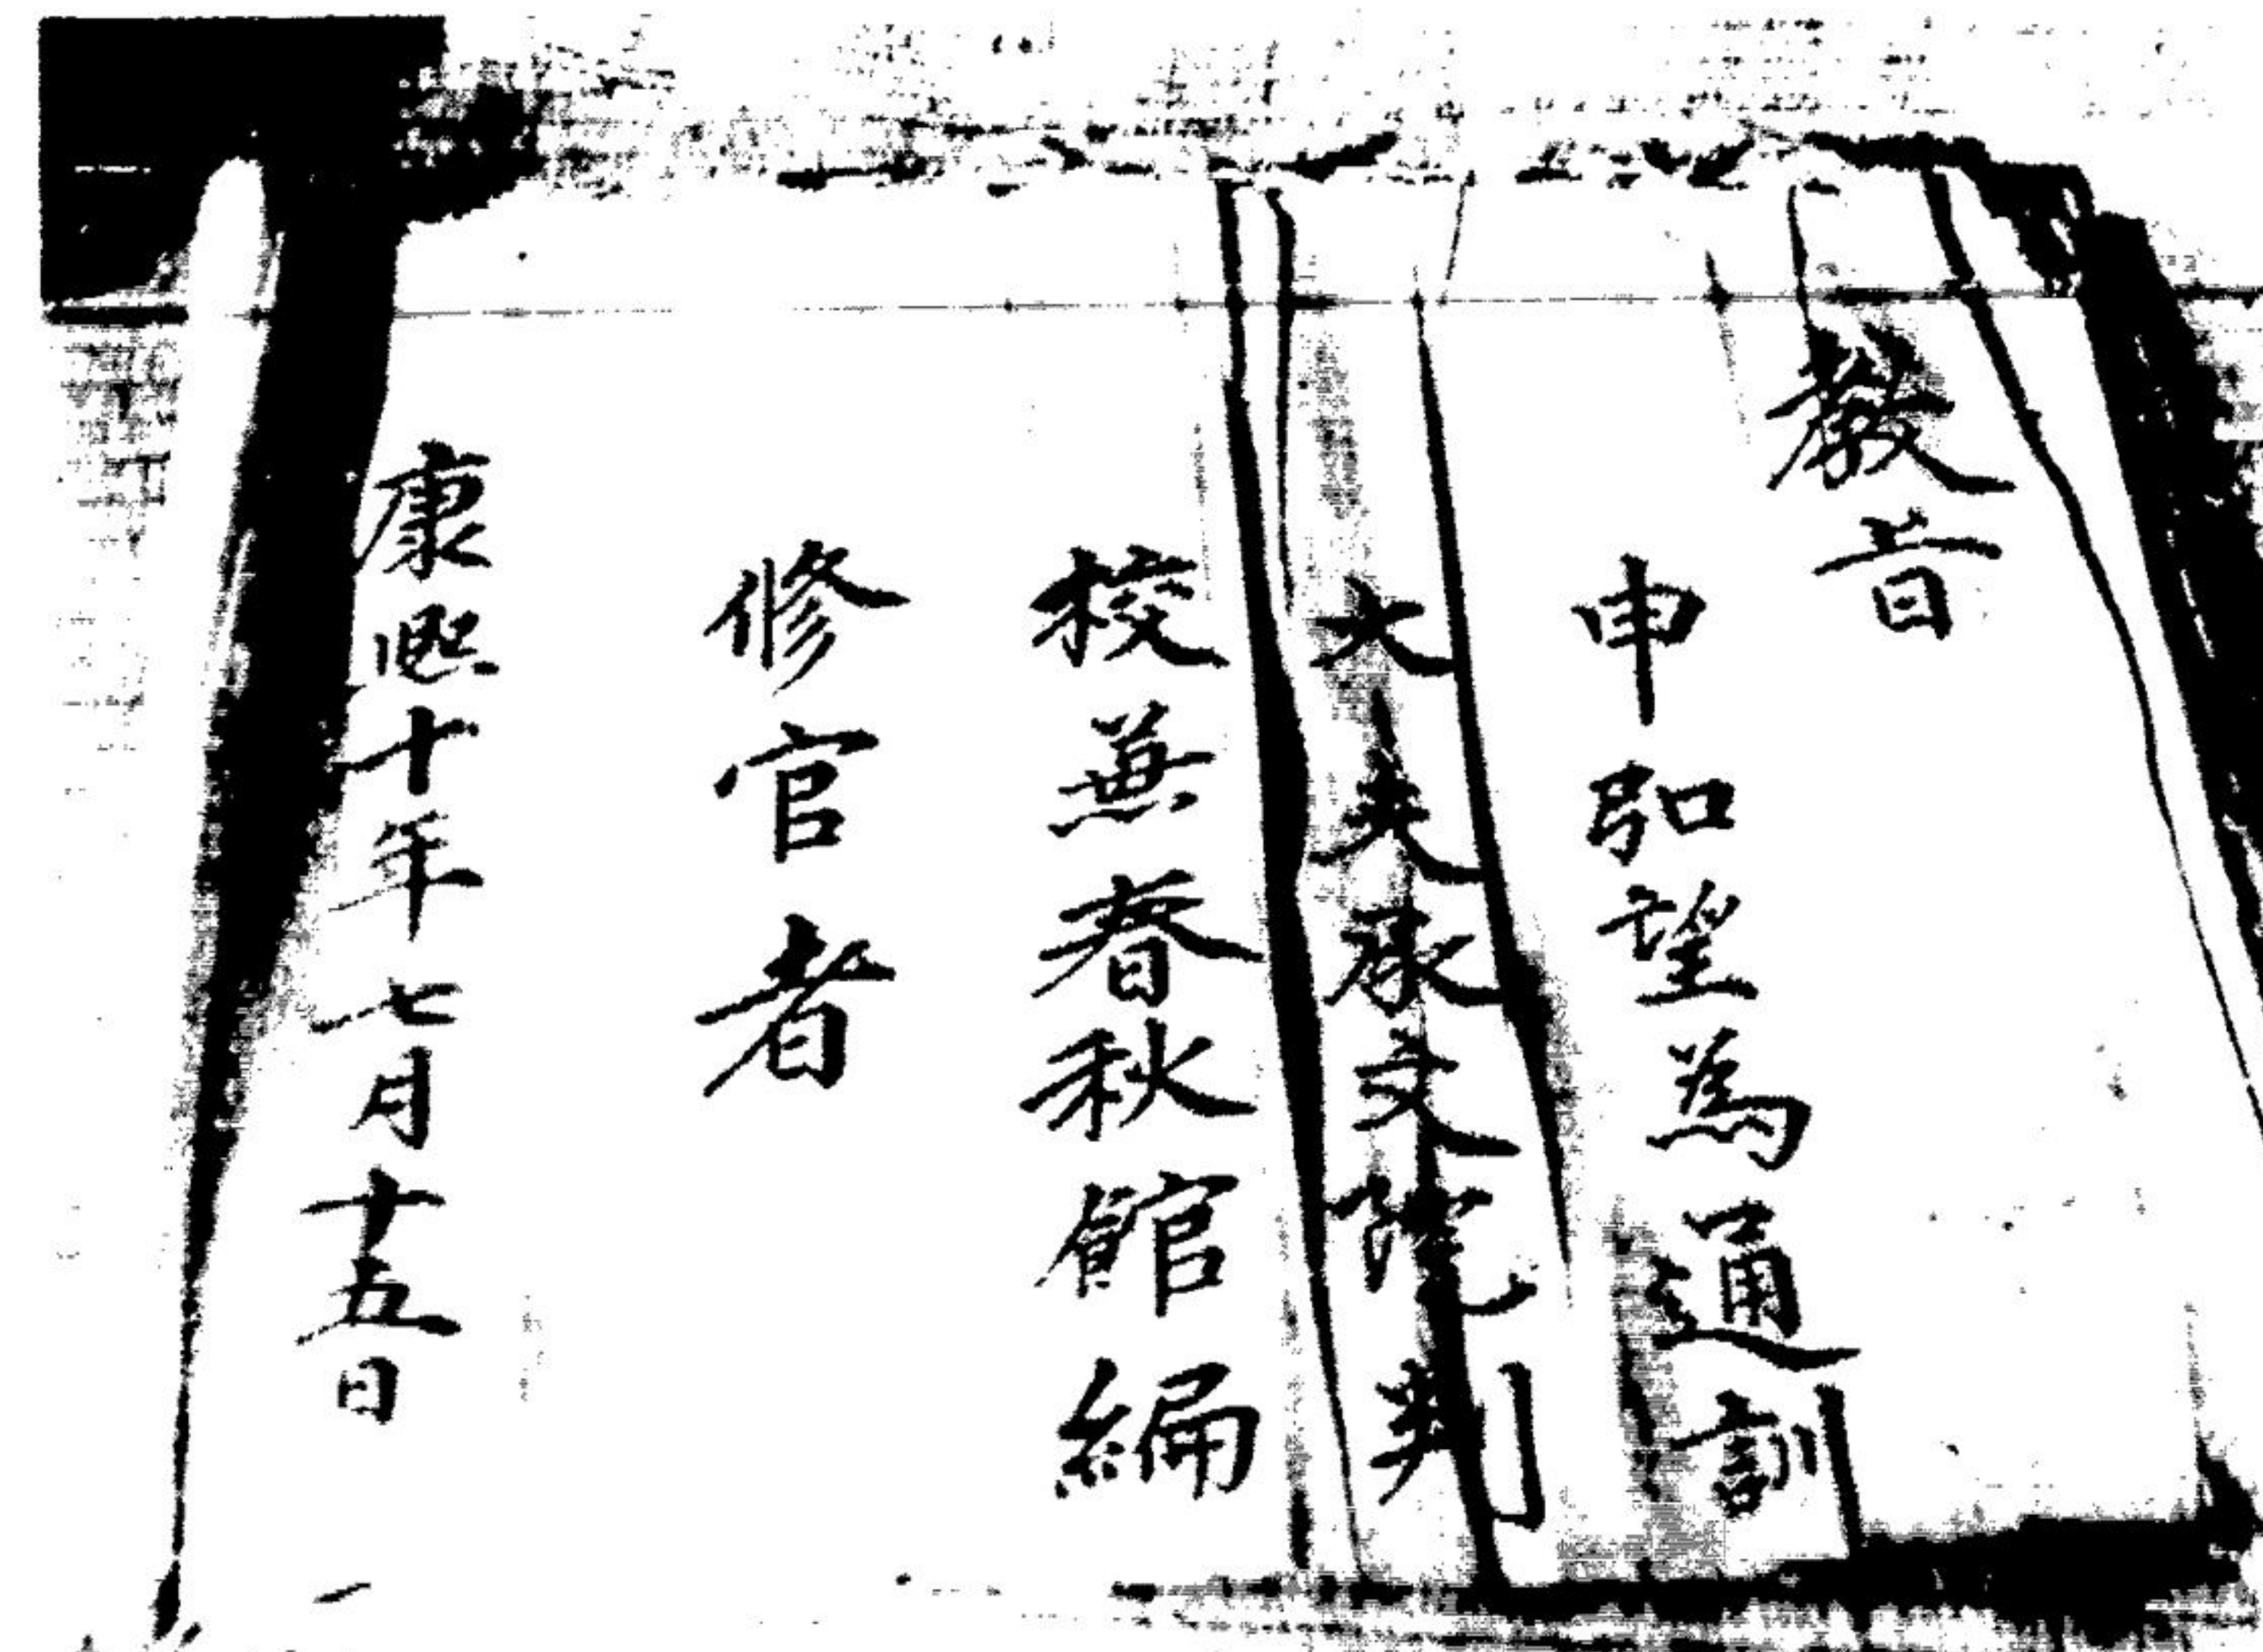 敎旨
申弘望為通訓
大夫承文院判
校兼春秋館編
修官者
康熙十年七月十五日